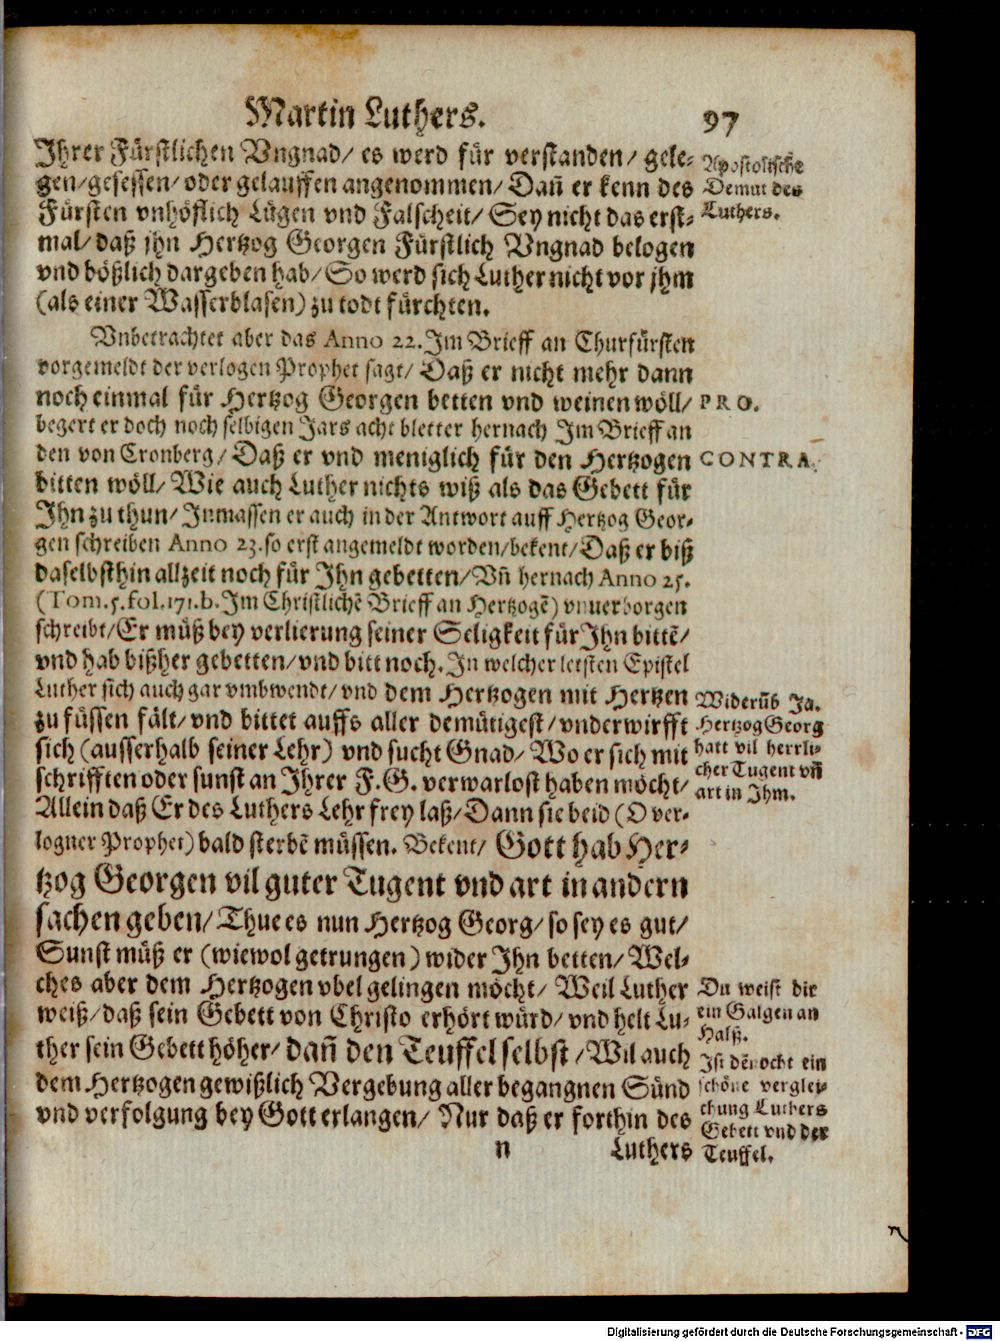 Martin Luthers.
97
Jhrer Fürstlichen Vngnad/ es werd für verstanden/ gele-
gen/gesessen/ oder gelauffen angenommen/ Dañ er kenn des
Fürsten vnhöflich Lügen vnd Falscheit/ Sey nicht das erst-
mal/ daß jhn Hertzog Georgen Fürstlich Vngnad belogen
vnd bößlich dargeben hab/ So werd sich Luther nicht vor jhm
(als einer Wasserblasen) zu todt fürchten.
Apostolische
Demut des
Luthers.
Vnbetrachtet aber das Anno 22. Jm Brieff an Churfürsten
vorgemeldt der verlogen Prophet sagt/ Daß er nicht mehr dann
noch einmal für Hertzog Georgen betten vnd weinen wöll/
PRO.
begert er doch noch selbigen Jars acht bletter hernach Jm Brieff an
den von Cronberg/ Daß er vnd meniglich für den Hertzogen
CONTRA.
bitten wöll/ Wie auch Luther nichts wiß als das Gebett für
Jhn zu thun/ Jnmassen er auch in der Antwort auff Hertzog Geor-
gen schreiben Anno 23. so erst angemeldt worden/bekent/ Daß er biß
daselbsthin allzeit noch für Jhn gebetten/ Vñ hernach Anno 25.
(Tom.5.fol.171.b. Jm Christlichẽ Brieff an Hertzogẽ) vnuerborgen
schreibt/ Er müß bey verlierung seiner Seligkeit für Jhn bittẽ/
vnd hab bißher gebetten/ vnd bitt noch. Jn welcher letsten Epistel
Luther sich auch gar vmbwendt/ vnd dem Hertzogen mit Hertzen
zu füssen fält/ vnd bittet auffs aller demütigest/ vnderwirfft
sich (ausserhalb seiner Lehr) vnd sucht Gnad/ Wo er sich mit
schrifften oder sunst an Jhrer F. G. verwarlost haben möcht/
Allein daß Er des Luthers Lehr frey laß/ Dann sie beid (O ver-
logner Prophet) bald sterbẽ müssen. Bekent/ Gott hab Her-
tzog Georgen vil guter Tugent vnd art in andern
sachen geben/ Thue es nun Hertzog Georg/ so sey es gut/
Sunst müß er (wiewol getrungen) wider Jhn betten/ Wel-
ches aber dem Hertzogen vbel gelingen möcht/ Weil Luther
weiß/ daß sein Gebett von Christo erhört würd/ vnd helt Lu-
ther sein Gebett höher/ dañ den Teuffel selbst/ Wil auch
dem Hertzogen gewißlich Vergebung aller begangnen Sünd
vnd verfolgung bey Gott erlangen/ Nur daß er forthin des
Widerũb Ja.
Hertzog Georg
hatt vil herrli-
cher Tugent vñ
art in Jhm.
Du weist dir
ein Galgen an
Halß.
Jst dẽnocht ein
schöne verglei-
chung Luthers
Gebett vnd der
Teuffel.
n
Luthers
Digitalisierung gefördert durch die Deutsche Forschungsgemeinschaft - DFG